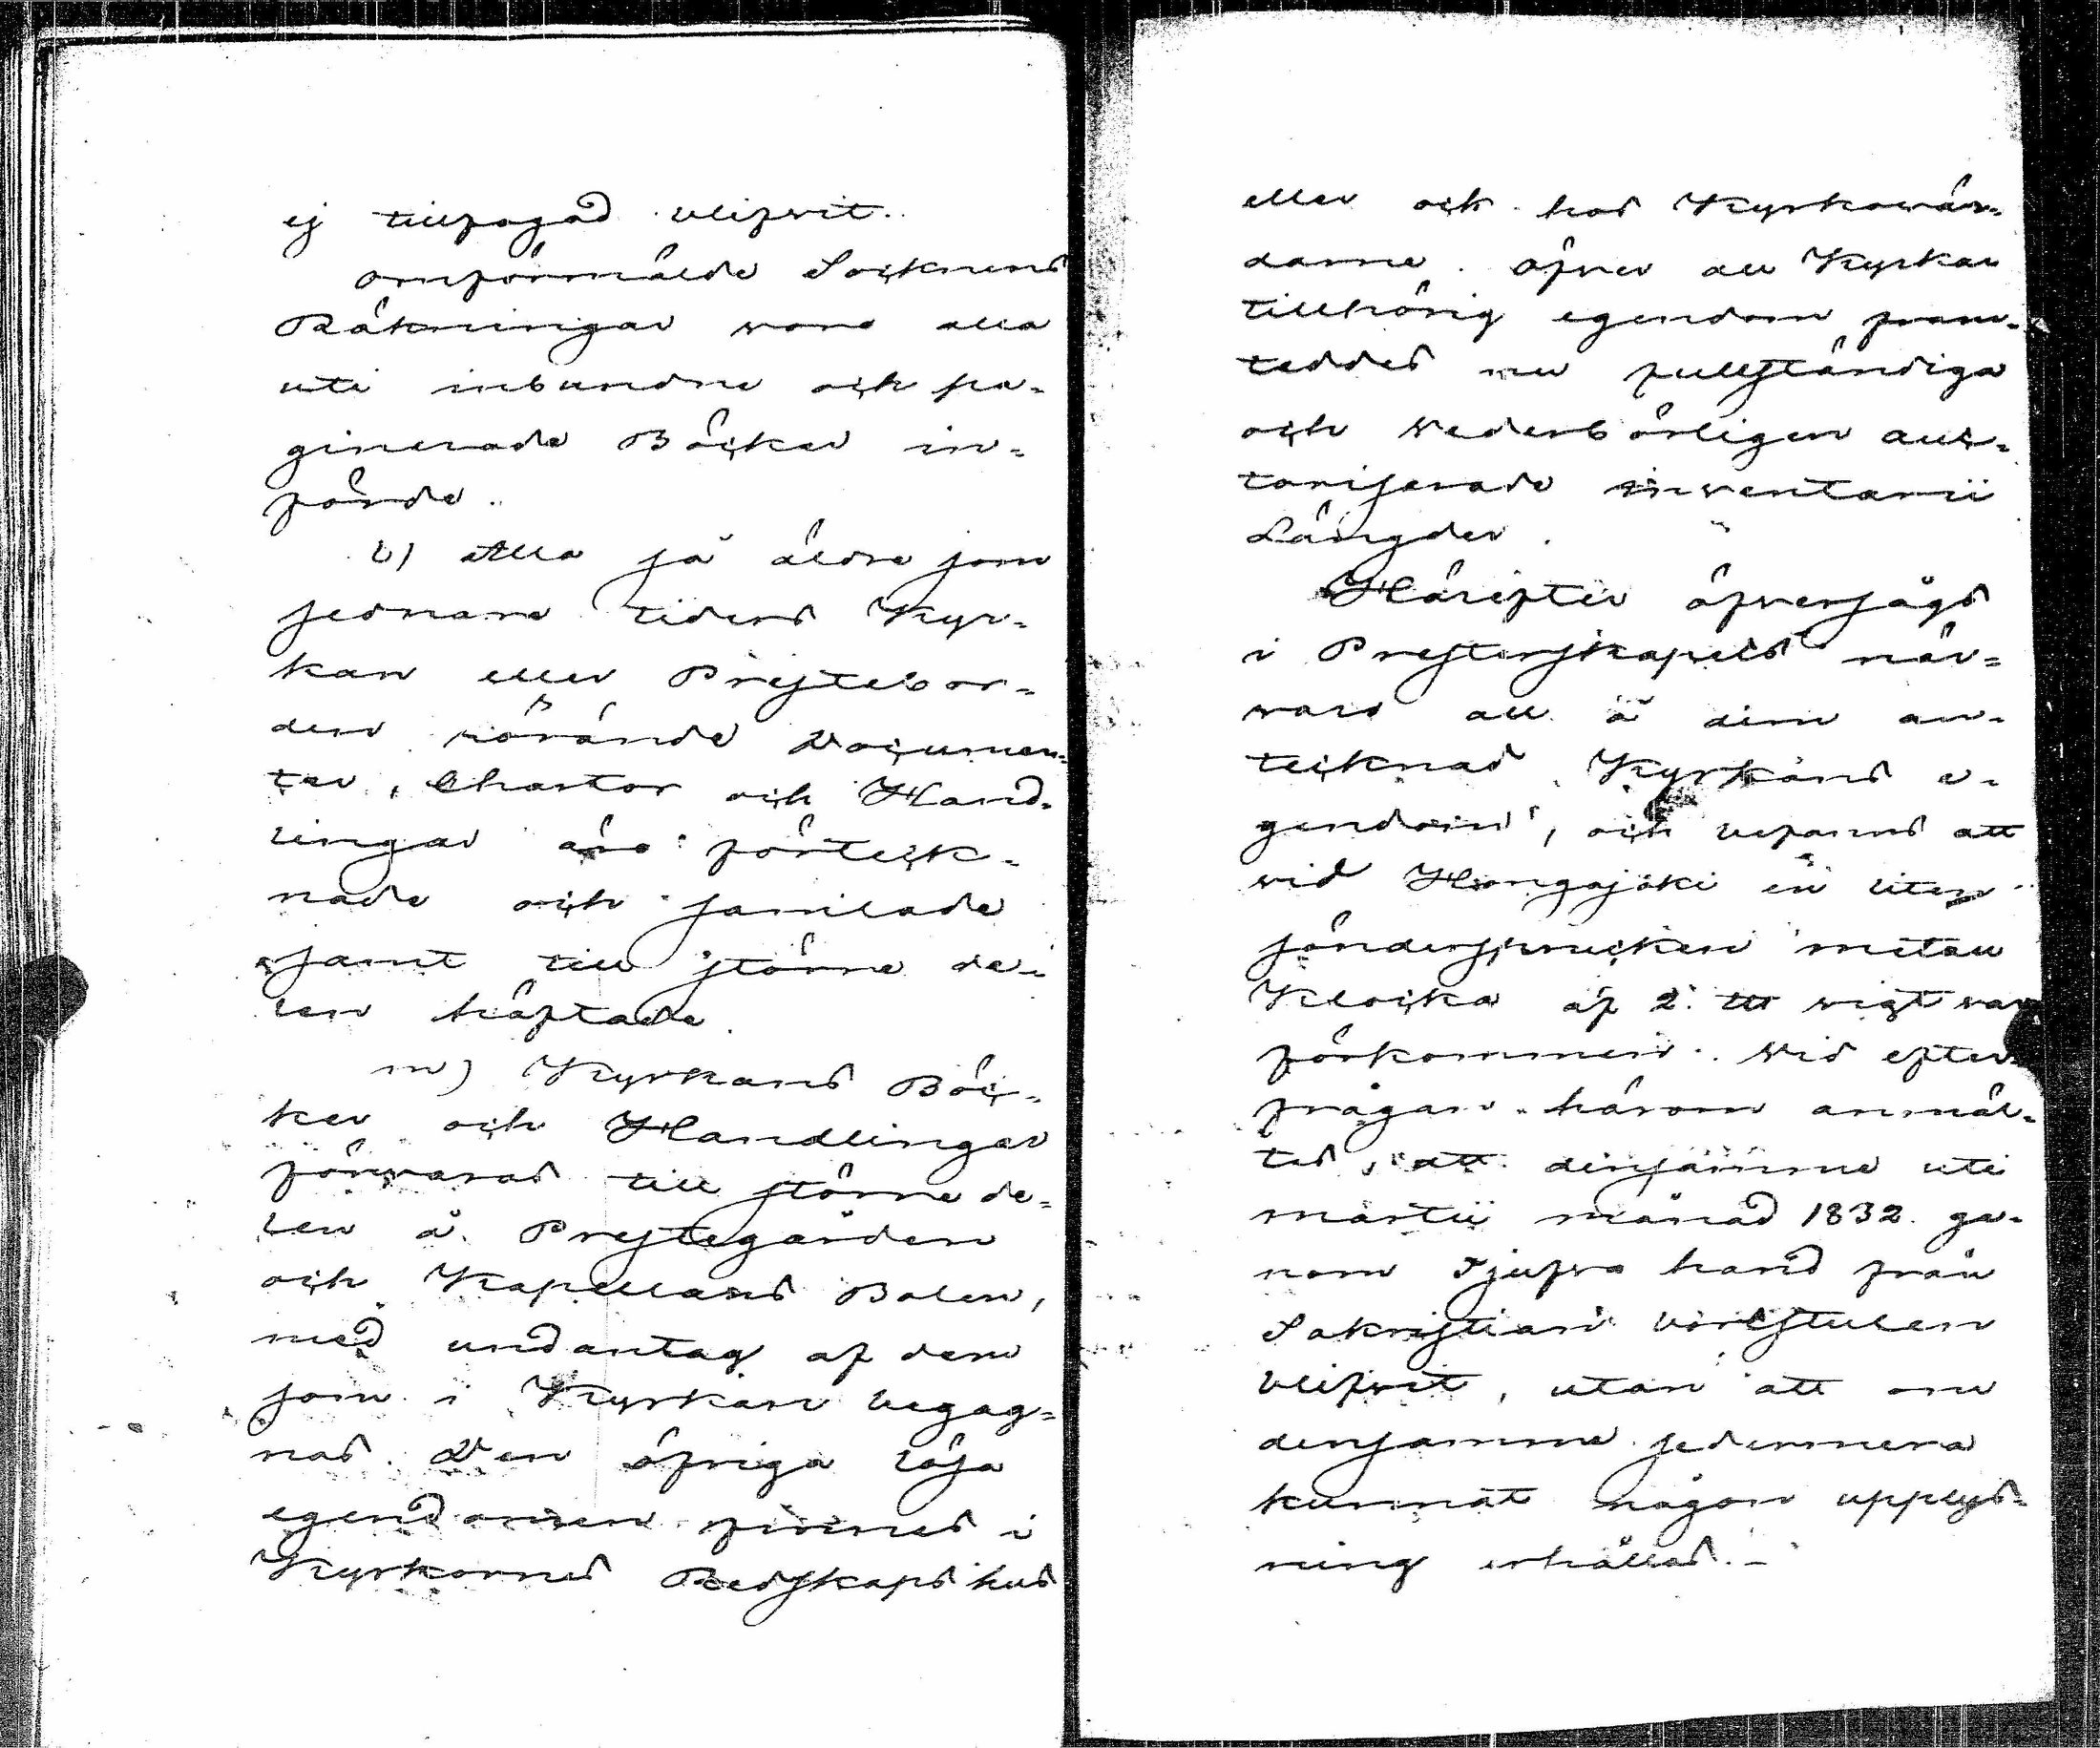 ej tillfogad blifvit.
omförmälde Socknens
Räkningar voro alla
uti inbundne och pa-
ginerade Böcker in-
förde.
l) Alla så äldre som
sednare tiders Kyr-
kan eller Prestebor-
den rörande Documen-
ter, Chartor och Hand-
lingar äro förteck-
nade och samlade
samt till större de-
len häftade.
m) Kyrkans Böc-
ker och Handlingar
förvaras till större de-
len å Prestegården
och Kapellans Bolen,
med undantag af dem
som i Kyrkan begag-
nas. Den öfriga lösa
egendomen finnes i
Kyrkornes Redskaps hus
eller ock hos Kyrkovär-
darne. öfver all Kyrkan
tillhörig egendom fram-
teddes nu fullständiga
och vederbörligen auc-
toriserade inventarii
Längder.
Härefter öfversågs
i Presterskapets när-
varo all å dem an-
tecknad Kyrkans e-
gendom, och befanns att
vid Hongajoki en liten
söndersprucken metall
Klocka af 2 ℔ vigt var
förkommen. Vid efter-
frågan härom anmäl-
tes, att densamma uti
martii månad 1832 ge-
nom Tjufva hand från
Sakristian bortstulen
blifvit, utan att om
densamma sedermera
kunnat någon upplys-
ning erhållas.-